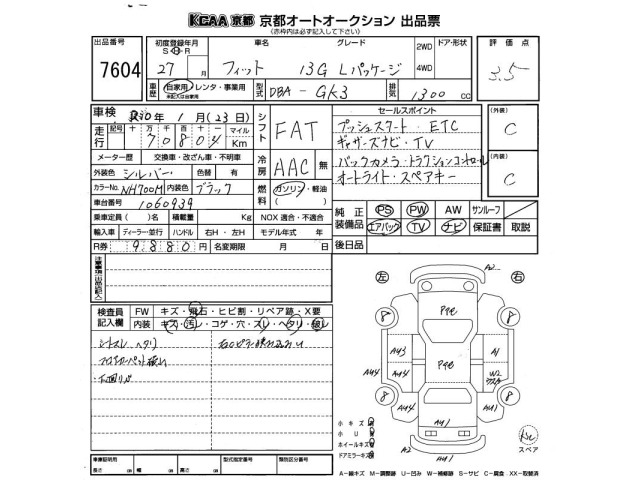 KCAA京都 京都オートオークション 出品票
(赤枠内は必ず記入して下さい)
出品番号
7604
初度登録年月 車名 グレード 2WD ドア・形状 評価点
S H R
27 月 フィット 13G Lパッケージ 4WD 3.5
車歴 自家用・レンタ・事業用 型式 DBA - GK3 排気 1300 CC
車検 R10年 1月(23日) シフト FAT
走行 記号 十 万 千 百 十 一 マイル Km
70804
メーター歴 交換車・改ざん車・不明車
冷房 AAC 無
外装色 シルバー 色替 有
カラーNo. NH700M 内装色 ブラック
燃料 ガソリン・軽油
車台番号 1060939
乗車定員( )名 積載量 Kg NOX 適合・不適合
輸入車 ディーラー・並行 ハンドル 右H・左H モデル年式 年
R券 9880円 名変期限 月 日
セールスポイント
プッシュスタート・ETC
ギャザーズナビ・TV
バックカメラ・トラクションコントロール
オートライト・スペアキー
(外装)
C
(内装)
C
純正装備品 PS PW AW サンルーフ
エアバック TV ナビ 保証書 取説
後日品
検査員記入欄
FW キズ・飛石・ヒビ割・リペア跡・X要
内装 キズ・汚レ・コゲ・穴・スレ・ヘタリ・破レ
シートスレ ヘタリ
フロアカーペット破レ
左 右
A2
8 8
Pﾁｮﾋ
A43 A1
A44 Pﾁｮﾋ W2
A44 A41
8 8
A41
A2 A41
小キズ
小U
ホイールキズ
ドアミラーキズ
スペア
車庫証明用 型式指定番号 類別区分番号
長さ cm 幅 cm 高さ cm
A―線キズ M―調整跡 U―凹み W―補修跡 S―サビ C―腐食 XX―取替済